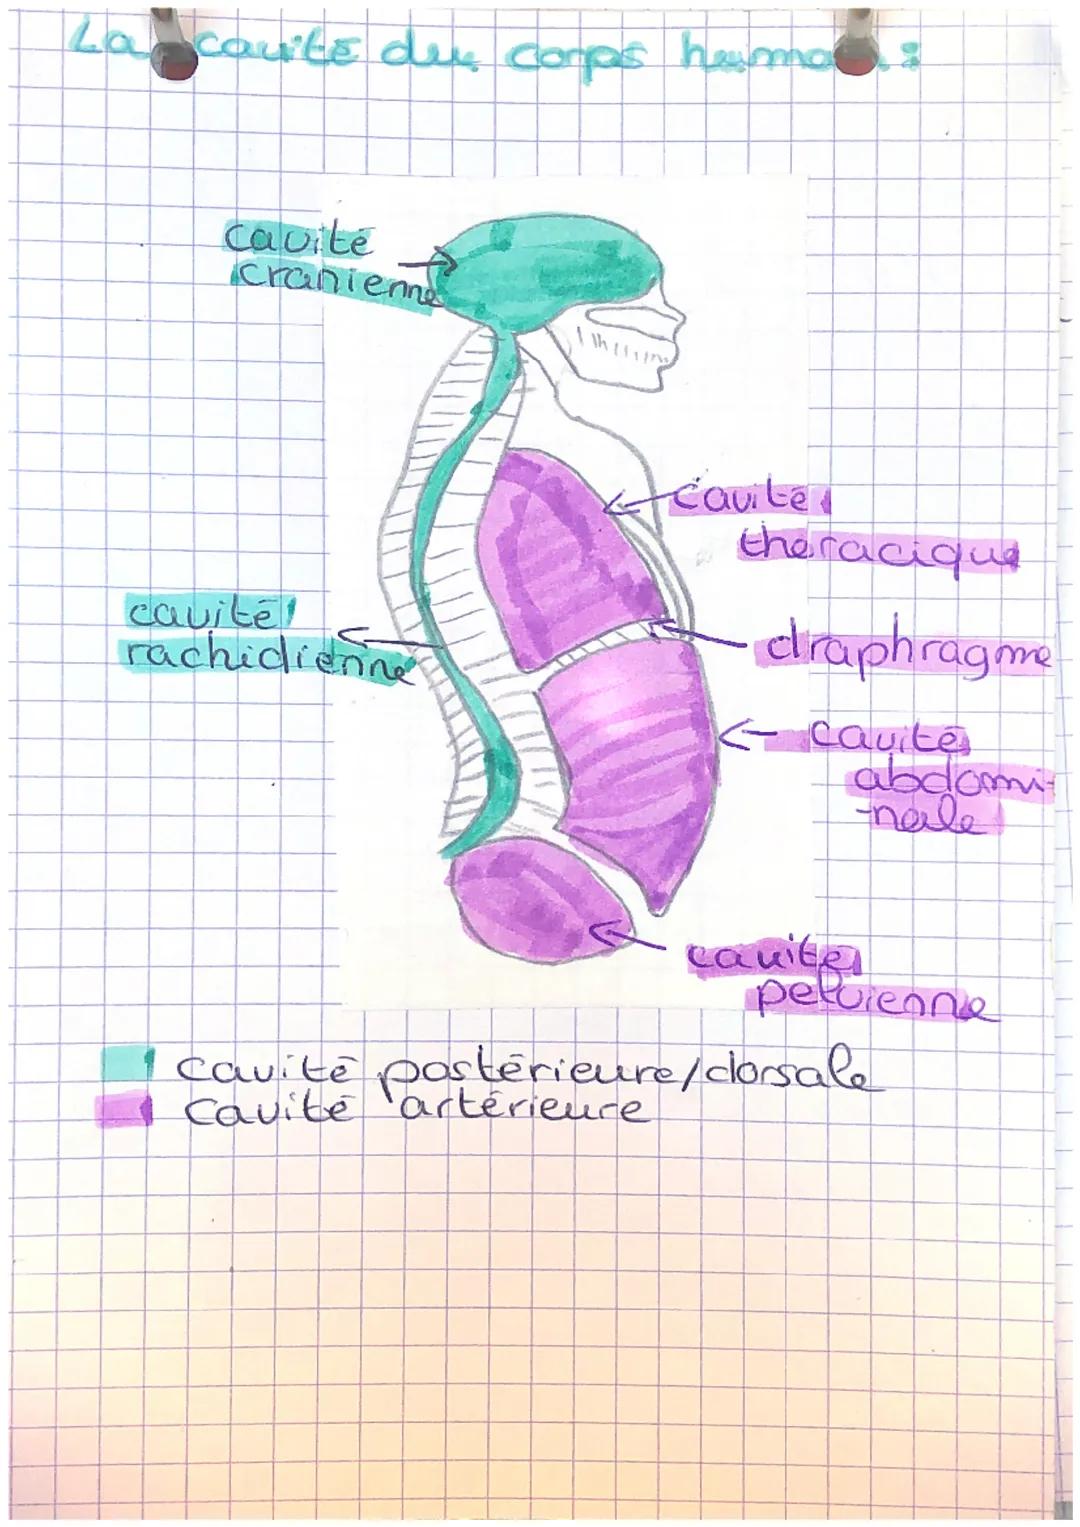 La cavité du corps huma :
cavité
cranienne
cavité
thoracique
cavité
rachidienne
diaphragme
cavité
abdomi-
-nale
cavité
pelvienne
cavité postérieure/dorsale
cavité artérieure